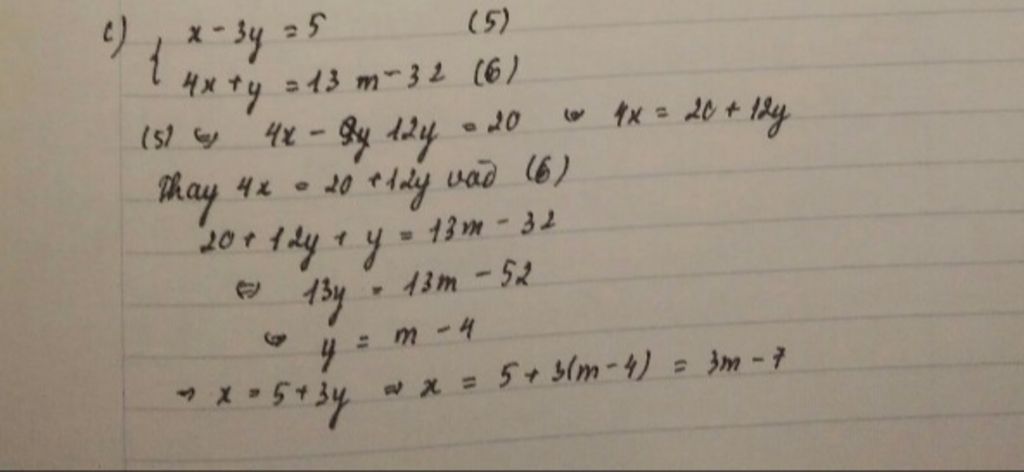 c) { x - 3y = 5 (5)
4x + y = 13m - 32 (6)
(5) ⇔ 4x - 12y = 20 ⇔ 4x = 20 + 12y
Thay 4x = 20 + 12y vào (6)
20 + 12y + y = 13m - 32
⇔ 13y = 13m - 52
⇔ y = m - 4
→ x = 5 + 3y ⇒ x = 5 + 3(m - 4) = 3m - 7